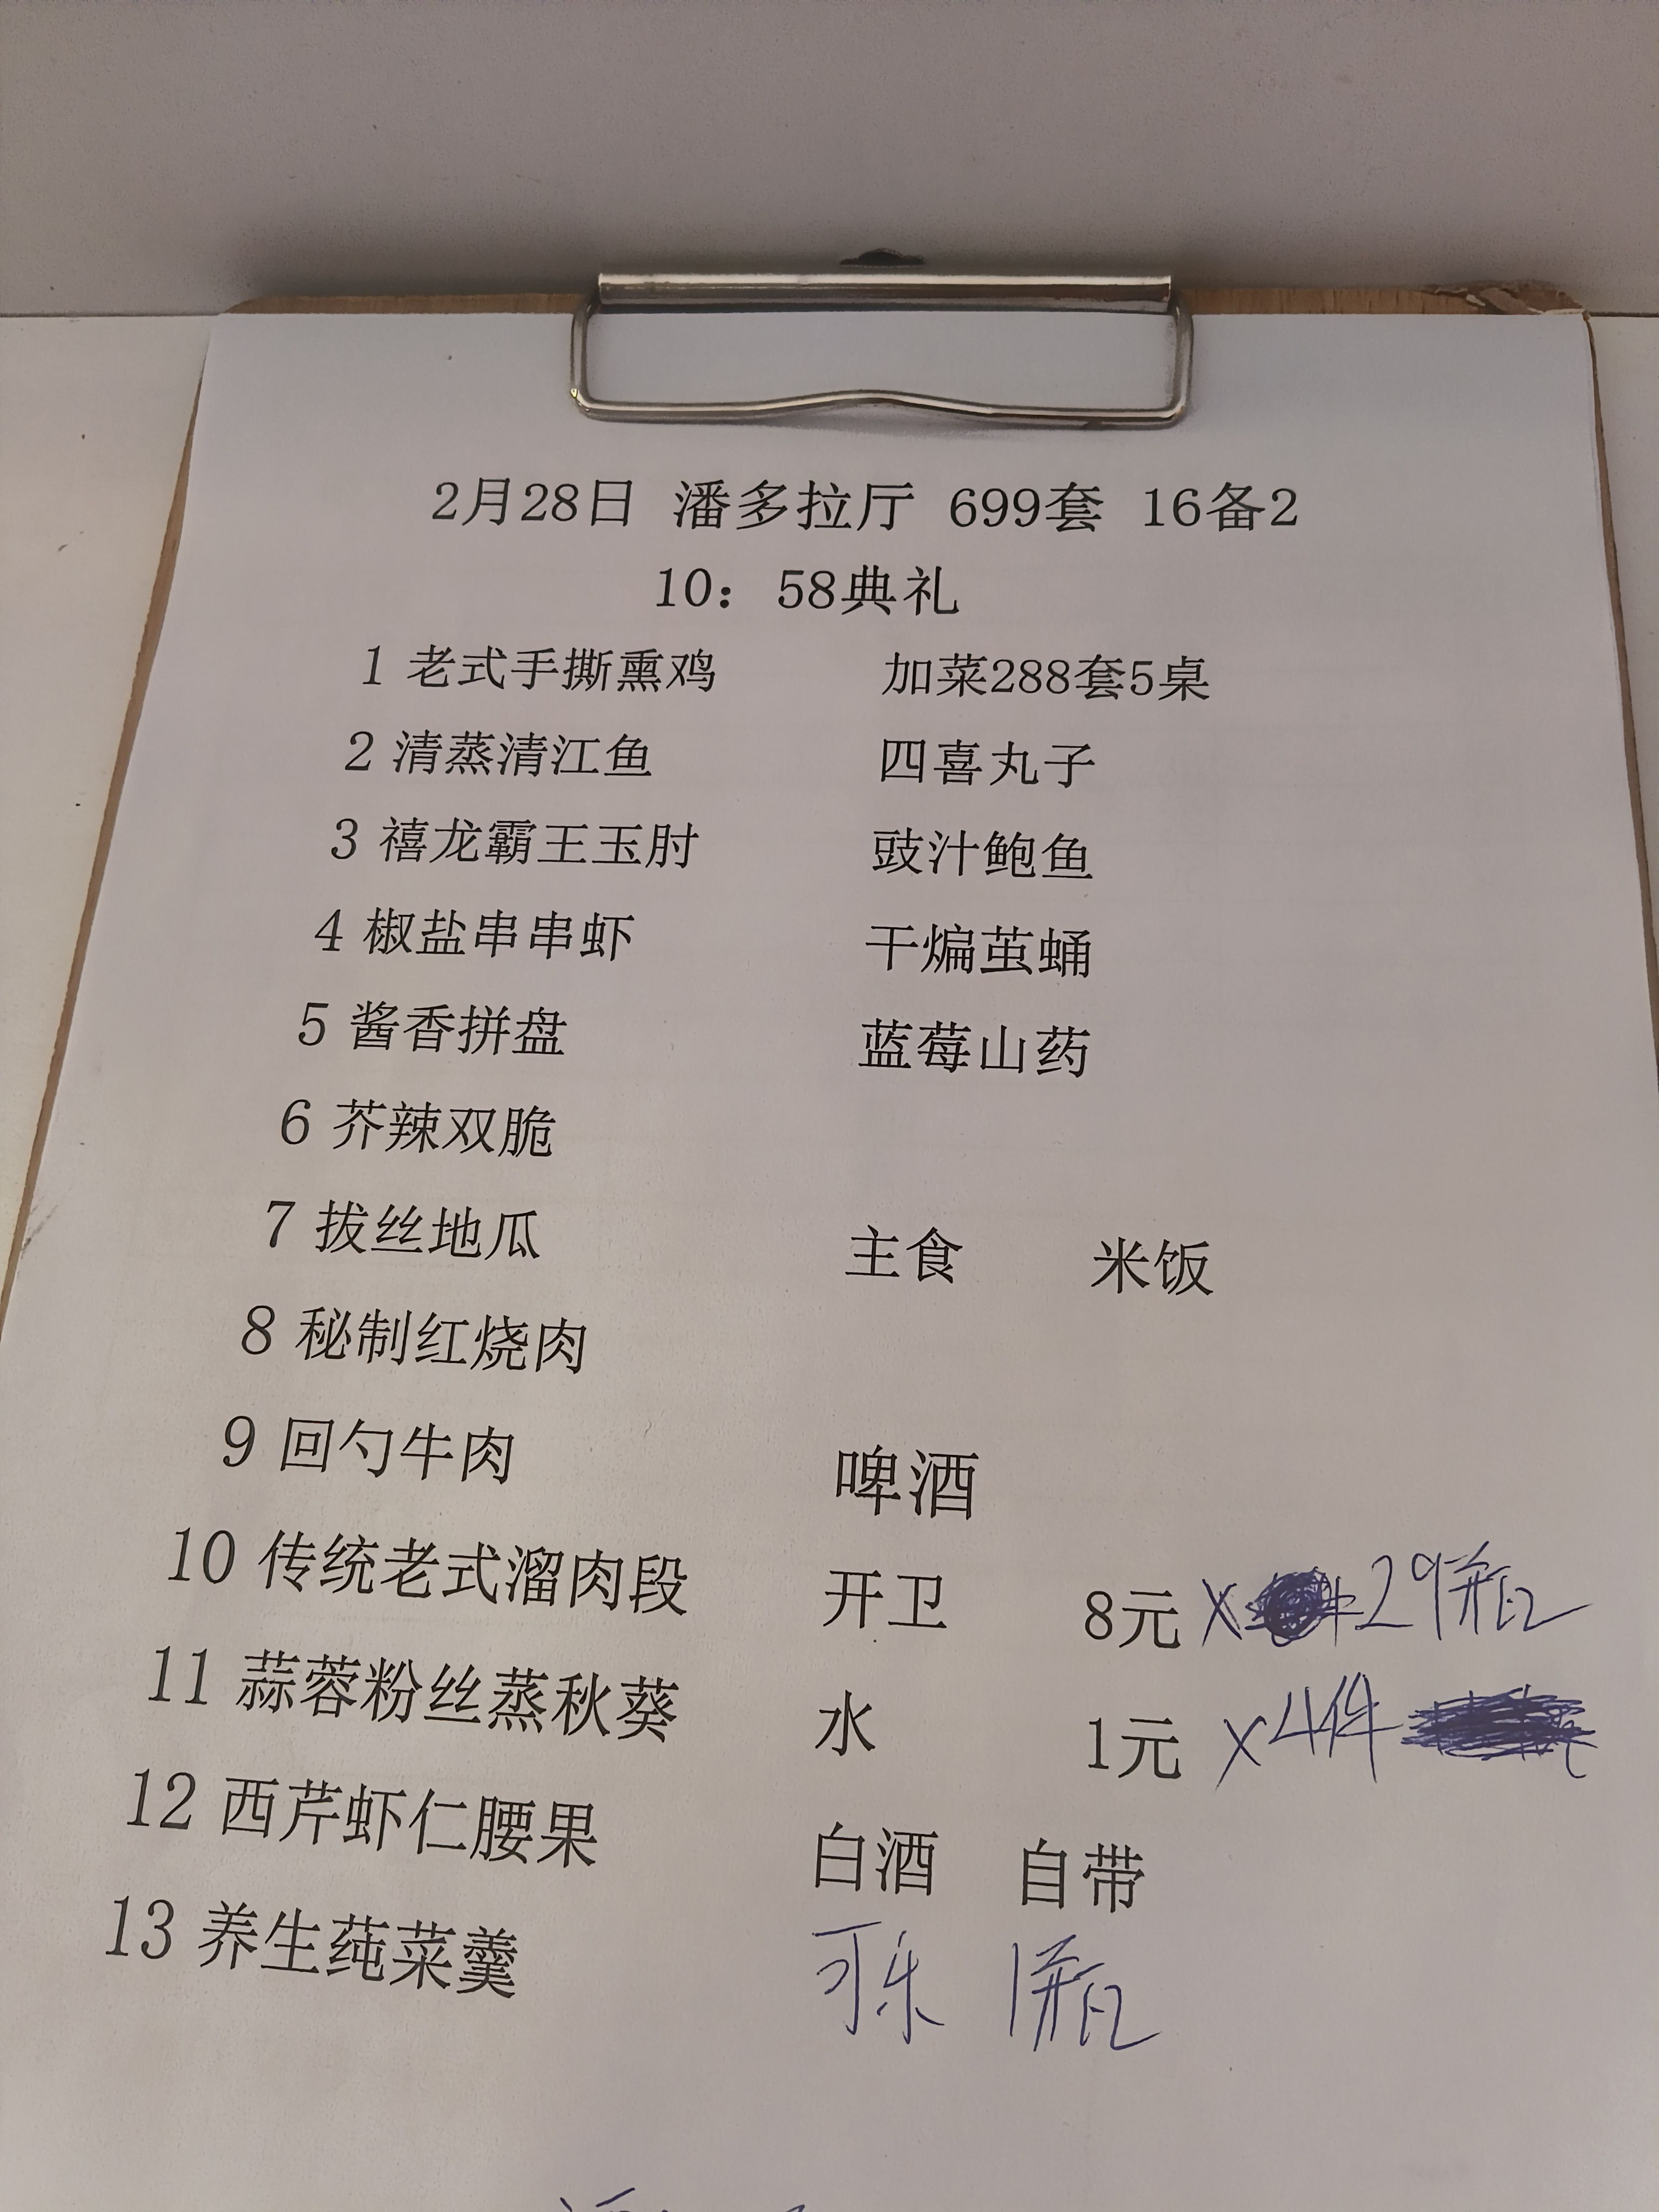 2月28日 潘多拉厅 699套 16备2
10：58典礼
1 老式手撕熏鸡
加菜288套5桌
2 清蒸清江鱼
四喜丸子
3 禧龙霸王玉肘
豉汁鲍鱼
4 椒盐串串虾
干煸茧蛹
5 酱香拼盘
蓝莓山药
6 芥辣双脆
7 拔丝地瓜
主食 米饭
8 秘制红烧肉
9 回勺牛肉
啤酒
10 传统老式溜肉段
开卫 8元 x 29瓶
11 蒜蓉粉丝蒸秋葵
水 1元 x4件
12 西芹虾仁腰果
白酒 自带
13 养生莼菜羹
可乐 1瓶